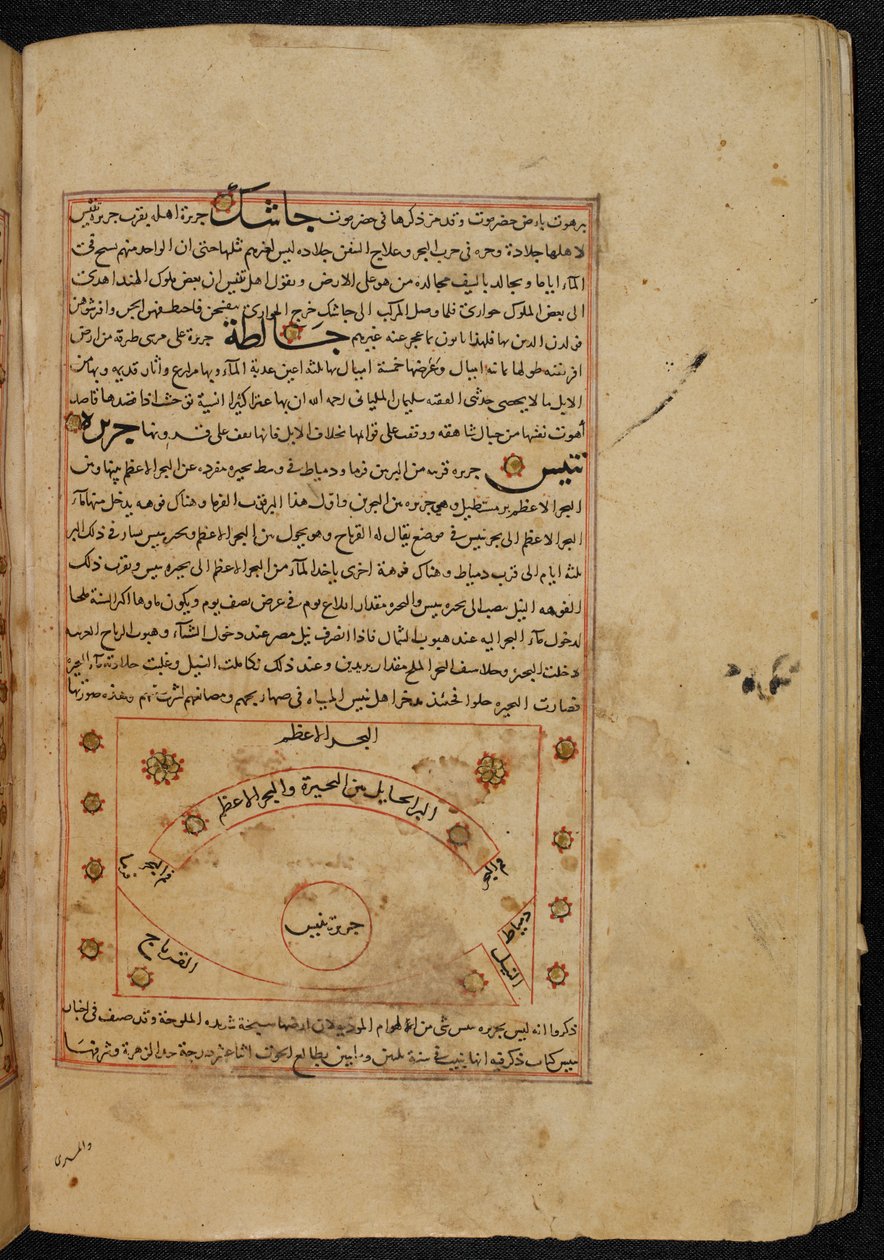 برهوت بارض حضرموت وقد مر ذكرها فى حضرموت جاشك جزيرة اهلة بقرب جزيرة قيس
لاهلها جلادة وخبرة فى حرب البحر وعلاج السفن جلادة ليس لغيرهم مثلها حتى ان الواحد منهم يسبح تحت
المآء اياما ويجالد بالسيف مجالدة من هو على الارض ويقول اهل قيس ان بعض ملوك الهند اهدى
الى بعض الملوك جوارى فلما وصل المركب الى جاشك خرج الجوارى يتفسحن فاختطفهن الجن وافترشوهن
فولدن الذين بها فلهذا ياتون بما عجز عنه غيرهم جالطة جزيرة على مرسى طبرقة من ارض
افريقية طولها اميال وعرضها خمسة اميال بها ثلثة اعين عذبة المآء وبها مزارع واثار قديمة وبها من
الايل ما لا يحصى حدثنى الفقيه سليمان الملتانى رحمه الله ان بها عنزا كثيرا انسية توحشت اذا قصدها قاصد
اهوت نفسها من جبال شاهقة ووقفت على قرونها بخلاف الايل فانها تقف على جزيرة
تنيس جزيرة قريبة من البر بين فرما ودمياط فى وسط بحيرة مفردة عن البحر الاعظم بينها وبين
البحر الاعظم بر مستطيل وهى جزيرة بين البحرين واول هذا البر قرب الفرما وهناك فوهة يدخل منها مآء
البحر الاعظم الى بحر تنيس فى موضع يقال له القرباج وهو يحول بين البحر الاعظم وبحر تنيس يسار فى ذلك البر
ثلثة ايام الى قرب دمياط وهناك فوهة اخرى ياخذ المآء من البحر الاعظم الى بحيرة تنيس وبقرب ذلك
الفوهة النيل يصب الى بحيرة تنيس والبحيرة مقدار اقلاع يوم فى عرض نصف يوم ويكون ماوها اكثر السنة ملحا
لدخول مآء البحر اليه عند هبوب الشمال فاذا انصرف نيل مصر عند دخول الشتآء وهبوب الرياح الغربية
خلت البحيرة وخلا سيف البحر الملح مقدار بريدين وعند ذلك تكاملت النيل وغلبت حلاوته مآء البحر
فصارت البحيرة حلوا فحينئذ يدخر اهل تنيس المياه فى صهاريجهم ومصانعهم لشرب سنتهم وهذه صورتها
البحر الاعظم
البر الحايل بين البحيرة والبحر الاعظم
فم البحر
فرما
فم البحر
جزيرة تنيس
دمياط
النيل
القرباج
ذكروا انه ليس بجزيرة تنيس شى من الهوام الموذية لان ارضها سبخة شديدة الملوحة وقد صنف فى اخبار
تنيس كتاب ذكر فيه انها بنيت فى سنة ثلثين ومايتين بطالع الحوت اثنا عشر درجة حد الزهرة وشرفها
والمشترى